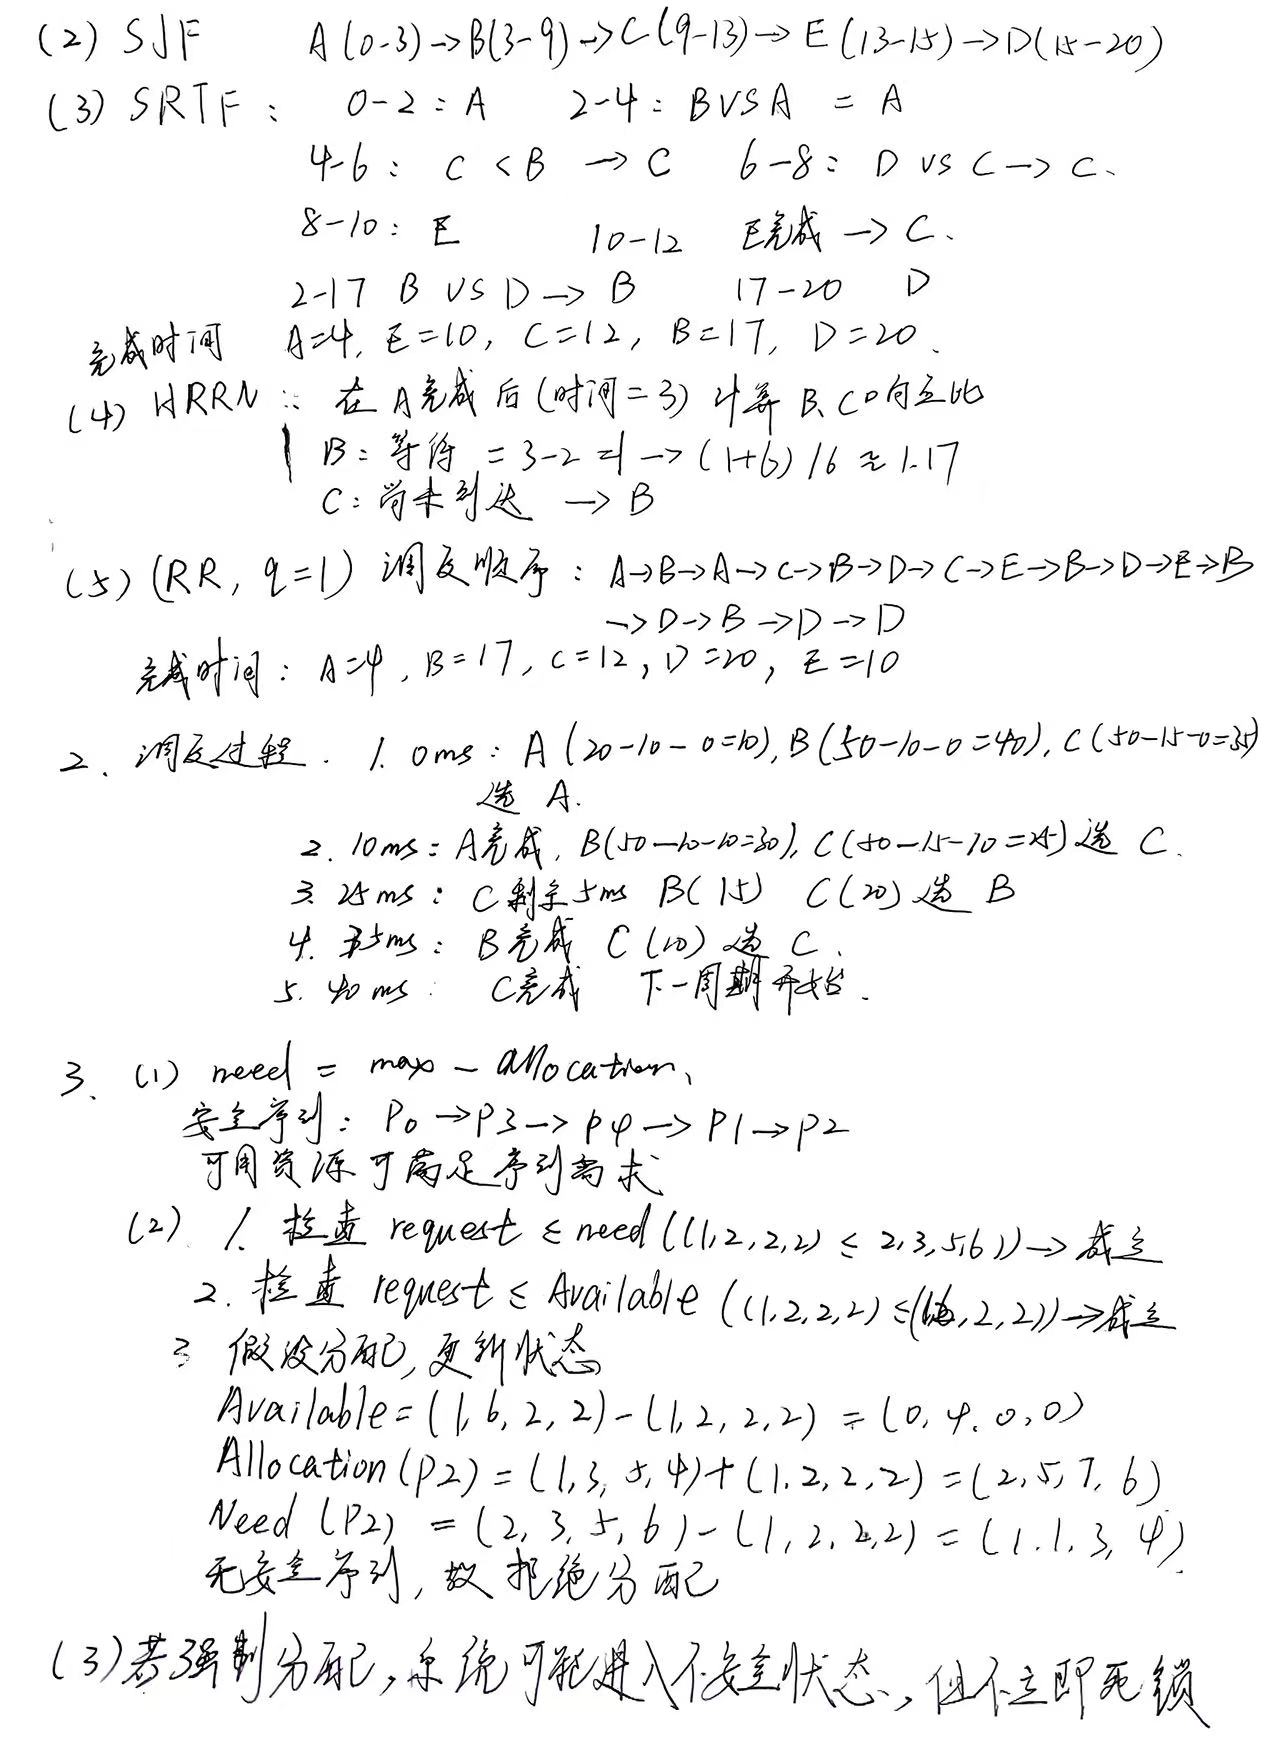 (2) SJF A(0-3)→B(3-9)→C(9-13)→E(13-15)→D(15-20)
(3) SRTF: 0-2:A 2-4:BVSA = A
4-6: C<B → C 6-8: D VS C → C.
8-10: E 10-12 E完成 → C.
2-17 B VS D → B 17-20 D
完成时间 A=4, E=10, C=12, B=17, D=20.
(4) HRRN: 在A完成后(时间=3)计算B、C响应比
B: 等待 = 3-2=1 → (1+6)/6≈1.17
C: 尚未到达 → B
(5) (RR, q=1) 调度顺序: A→B→A→C→B→D→C→E→B→D→E→B
→D→B→D→D
完成时间: A=4, B=17, C=12, D=20, E=10
2. 调度过程. 1. 0ms: A(20-10-0=10), B(50-10-0=40), C(50-15-0=35)
选 A.
2. 10ms: A完成, B(50-10-10=30), C(50-15-10=25) 选 C.
3. 25ms: C剩余5ms B(15) C(20) 选 B
4. 35ms: B完成 C(10) 选 C.
5. 40ms: C完成 下一周期开始.
3. (1) need = max - allocation,
安全序列: P0→P3→P4→P1→P2
可用资源可满足序列需求
(2) 1. 检查 request ≤ need ((1,2,2,2) ≤ 2,3,5,6)) → 成立
2. 检查 request ≤ Available ((1,2,2,2) ≤ (1,6,2,2)) → 成立
3 假设分配, 更新状态
Available=(1,6,2,2)-(1,2,2,2)=(0,4,0,0)
Allocation(P2)=(1,3,5,4)+(1,2,2,2)=(2,5,7,6)
Need (P2) = (2,3,5,6)-(1,2,2,2)=(1.1,3,4)
无安全序列, 故拒绝分配
(3) 若强制分配, 系统可能进入不安全状态, 但不立即死锁